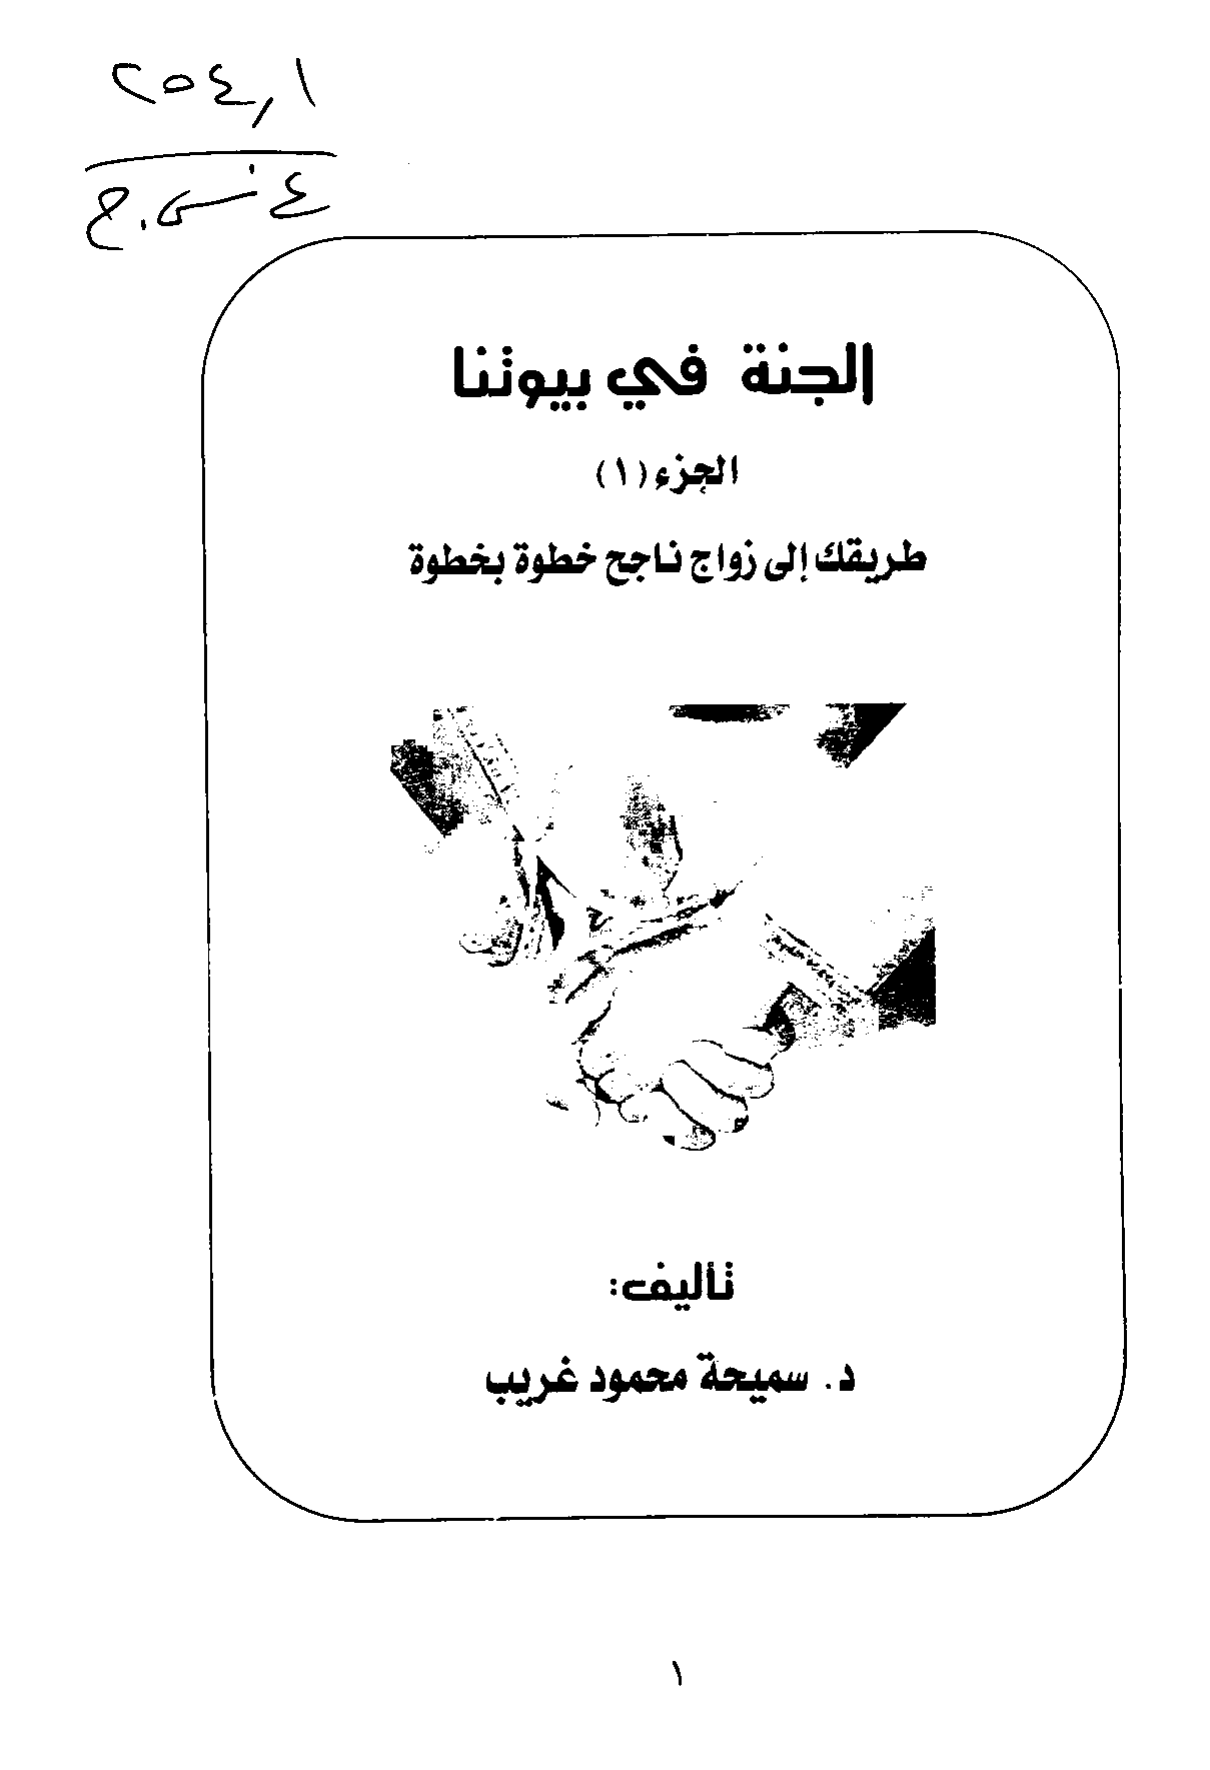 ٢٥٤,١
الجنة في بيوتنا
الجزء (١)
طريقك إلى زواج ناجح خطوة بخطوة
تأليف:
د. سميحة محمود غريب
١